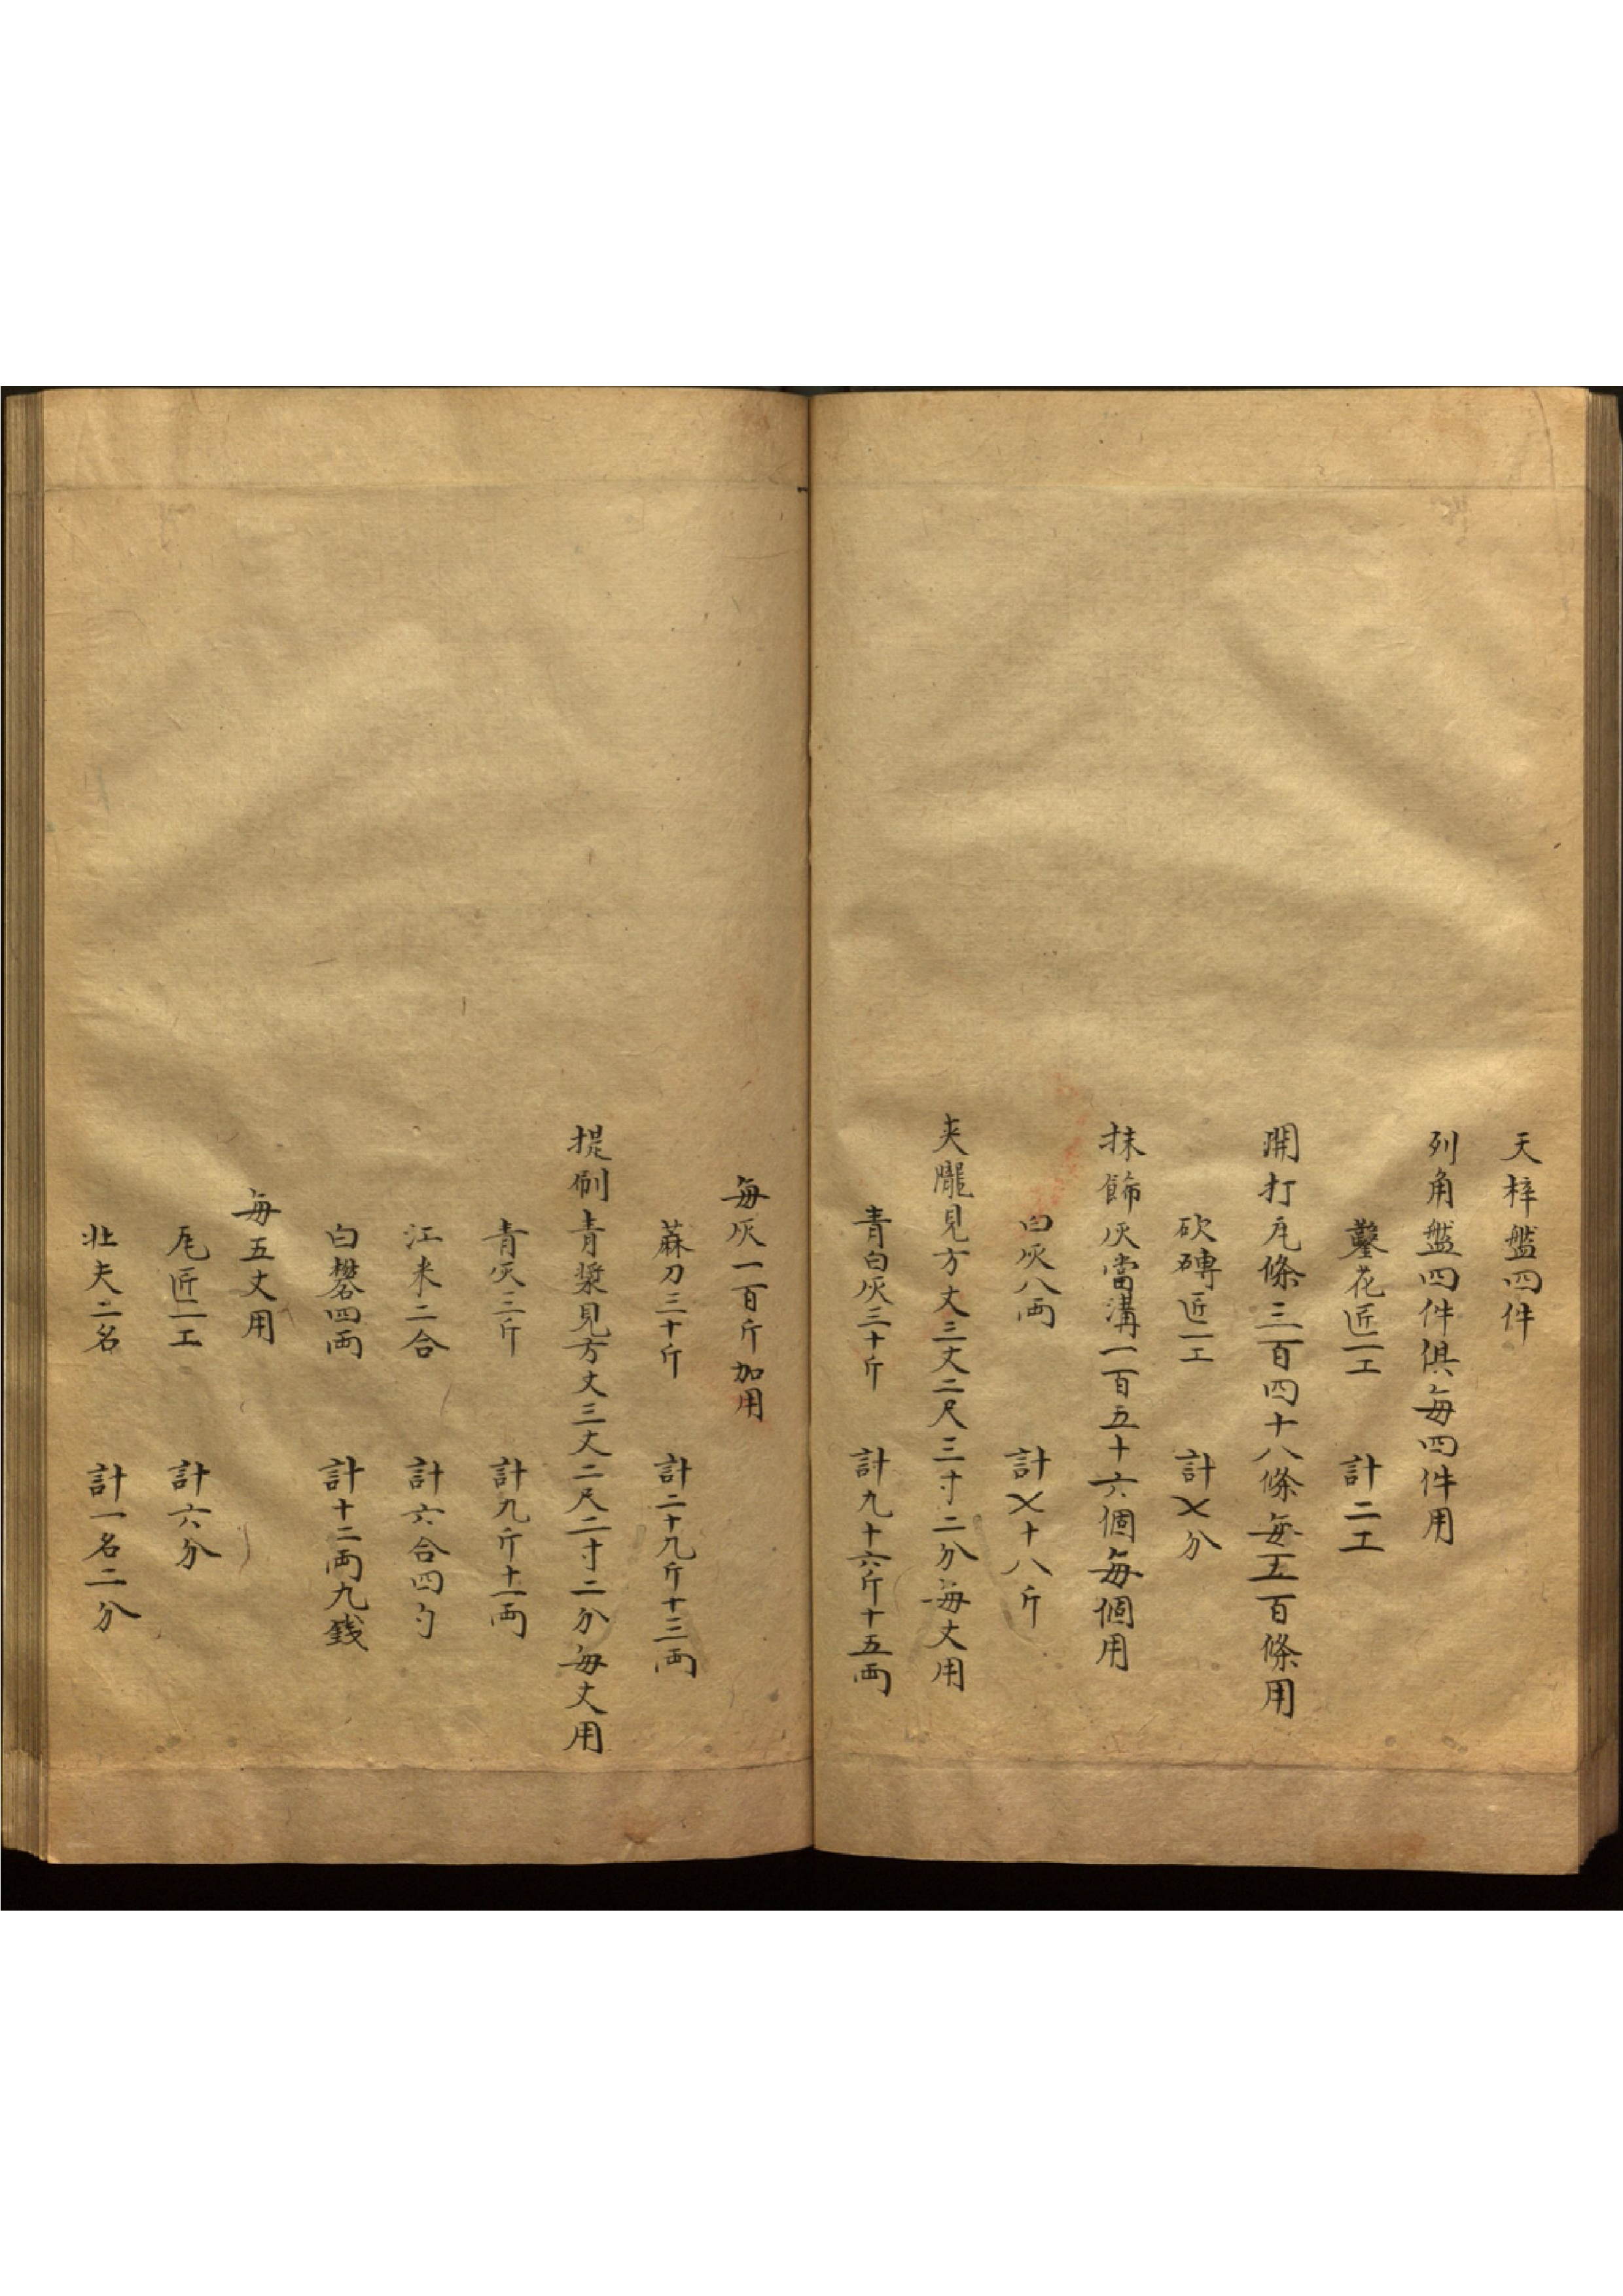 天梓盤四件
列角盤四件俱每四件用
鑿花匠一工　計二工
開打瓦條三百四十八條每五百條用
砍磚匠一工　計〤分
抹飾灰當溝一百五十六個每個用
白灰八兩　計〤十八斤
夾隴見方丈三丈二尺三寸二分每丈用
青白灰三十斤　計九十六斤十五兩
每灰一百斤加用
蔴刀三十斤　計二十九斤十三兩
提刷青漿見方丈三丈二尺二寸二分每丈用
青灰三斤　計九斤十一兩
江米二合　計六合四勺
白礬四兩　計十二兩九錢
每五丈用
瓦匠一工　計六分
壯夫二名　計一名二分